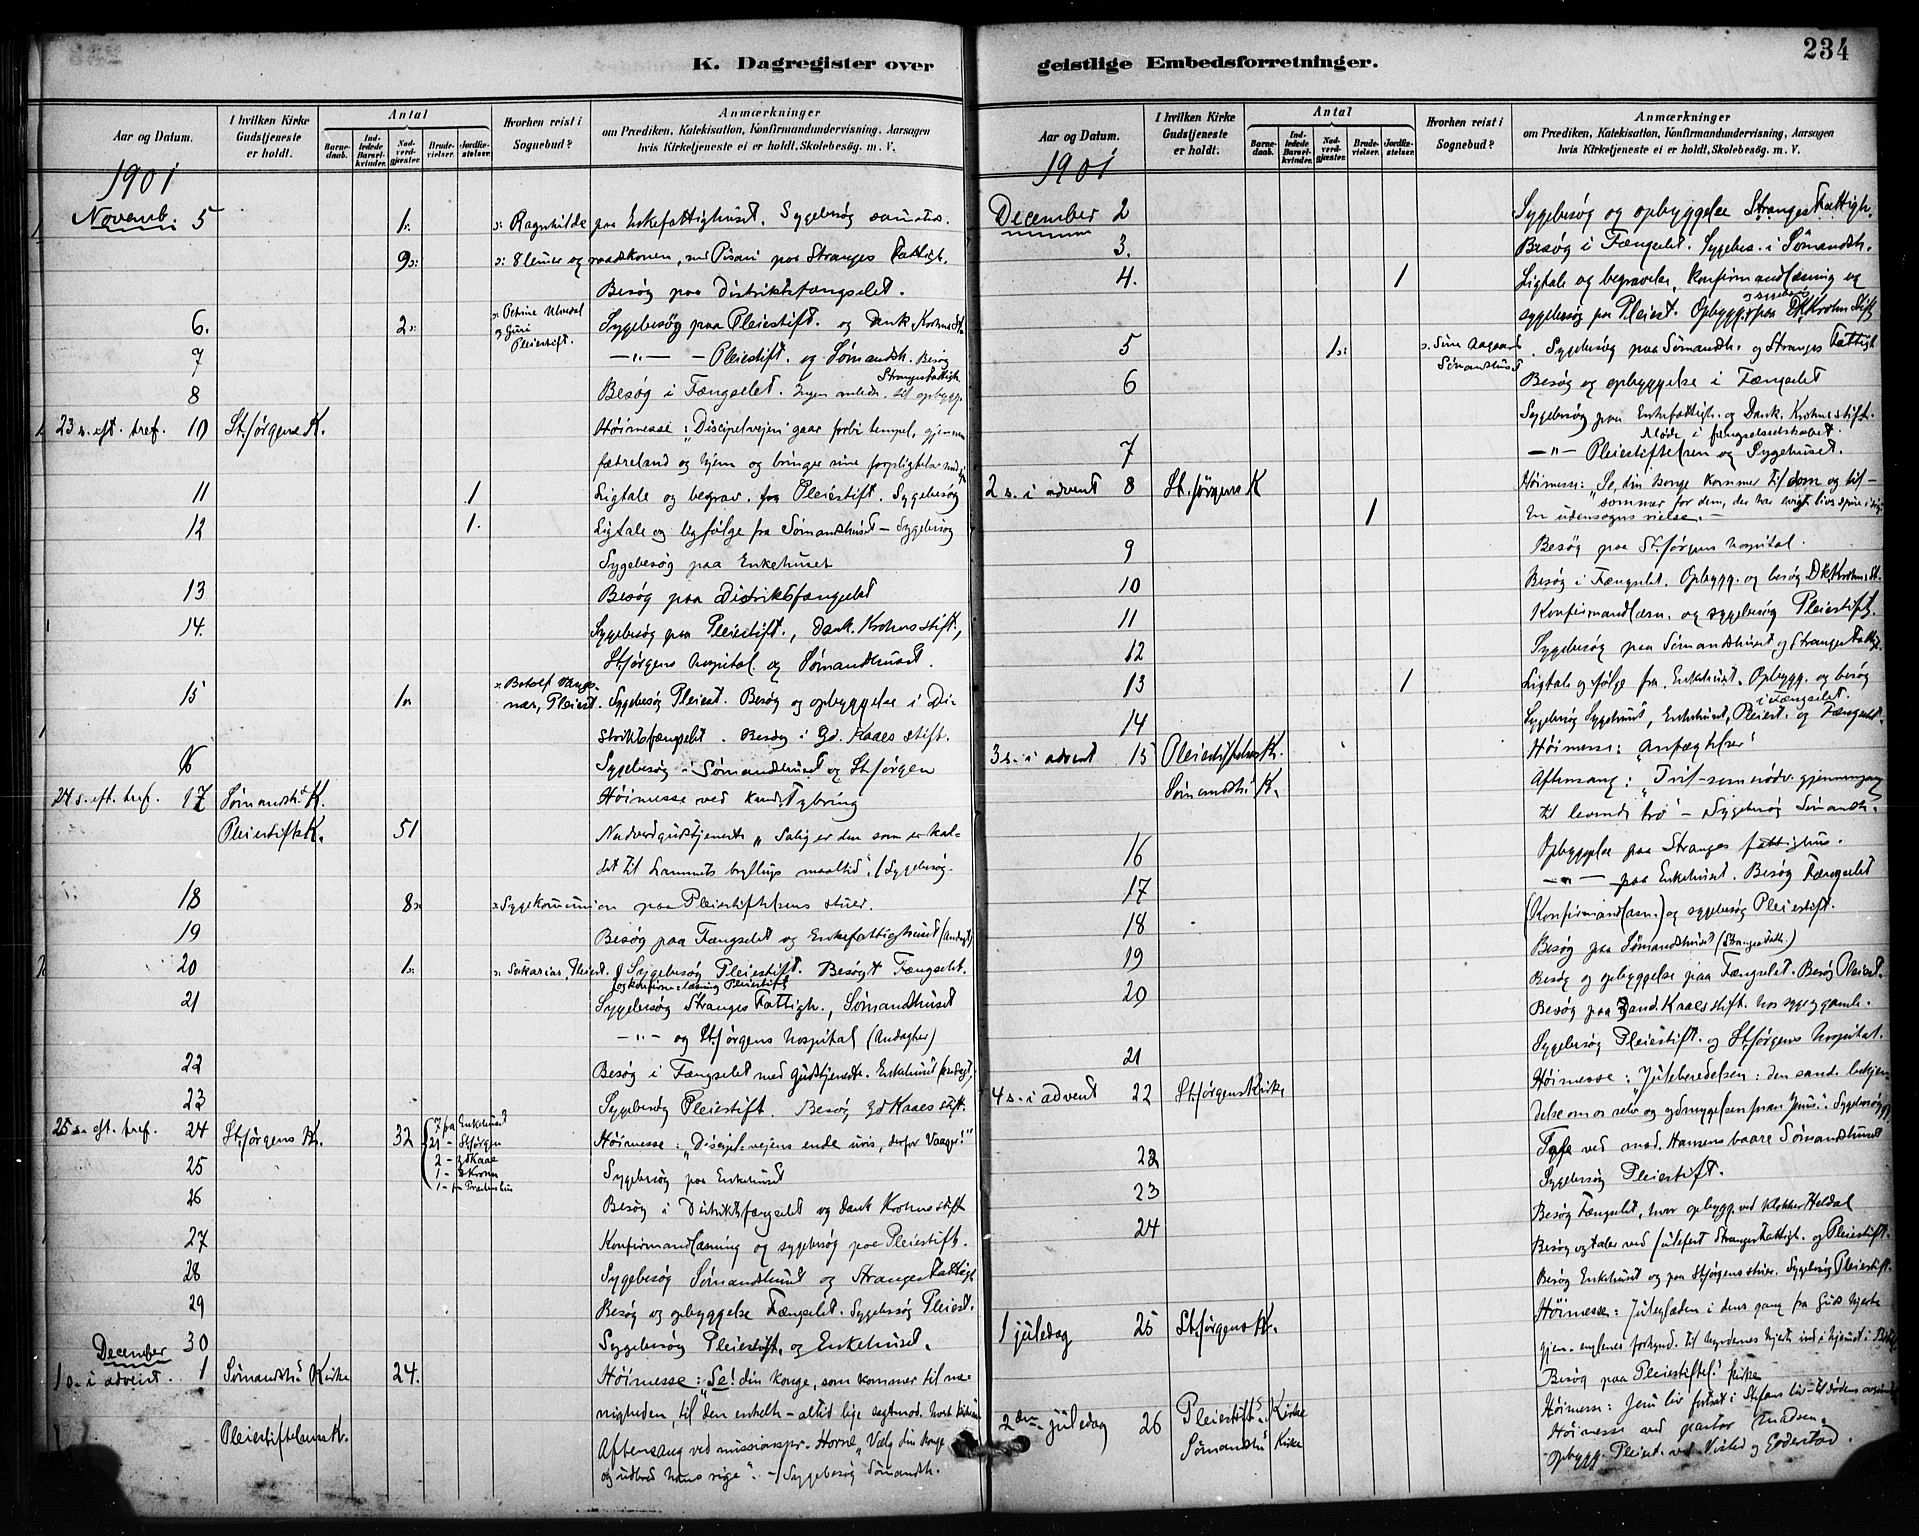 234
K. Dagregister over
geistlige Embedsforretninger.
Aar og Datum.
I hvilken Kirke Gudstjeneste er holdt.
Antal
Barnedaab.
Indledede Barselkvinder.
Nadverdgjæster.
Brudevielser.
Jordfæstelser.
Hvorhen reist i Sognebud?
Anmærkninger
om Prædiken, Katekisation, Konfirmandundervisning, Aarsagen
hvis Kirketjeneste ei er holdt, Skolebesøg. m. V.
1901
Novemb. 5 1 Ragnhilde paa Enkefattighuset. Sygebesøg
9 paa Stranges Fattigh.
Besøg paa Distriktsfængselet.
6. 2 og Guri Pleiestift. Sygebesøg paa Pleiestift. og Dank. Krohns St.
7 — " — Pleiestift. og Sømandsh. Besøg
Stranges Fattigh.
8 Besøg i Fængselet. Ingen til opbygg.
23 s. eft. tref. 10 St. Jørgens K. Høimesse: "Discipelvejen gaar forbi tempel, gjennem
fædreland og hjem og bringer sine
11 1 Ligtale og begrav. fra Pleiestift. Sygebesøg
12 1. Ligtale og ligfølge fra Sømandshuset – Sygebesøg
Sygebesøg paa Enkehuset
13 Besøg paa Distriktsfængselet
14. Sygebesøg paa Pleiestift., Dank. Krohns stift.,
St. Jørgens hospital og Sømandshuset.
15 1 Botolf Vangsnæs, Pleiest. Sygebesøg Pleiest. Besøg og opbyggelse i Di-
striktsfængselet. Besøg i Zd. Kaaes stift.
16 Sygebesøg i Sømandshuset og St. Jørgen
24 s. eft. tref. 17 Sømandsh. K. Høimesse ved kand.
Pleiestifts K. 51 Nadverdgudstjeneste "Salig er den som er kal-
det til Lammets bryllups maaltid". / Sygebesøg.
18 8 Sygekommunion paa Pleiestiftelsens stuer.
19 Besøg paa Fængselet og Enkefattighuset (Andagt)
20 1 Pleiest. Sygebesøg Pleiestift. Besøgt Fængselet.
og konfirm. læsning Pleiestift.
21 Sygebesøg Stranges Fattigh., Sømandshuset
— " — og St. Jørgens hospital (Andagter)
22 Besøg i Fængselet med gudstjeneste. Enkehuset
23 Sygebesøg Pleiestift. Besøg Zd Kaaes stift.
25 s. eft. tref. 24 St. Jørgens K. 32 7 fra Enkehuset
21 – St. Jørgen
2 – Zd Kaae
1 – D Krohn
Høimesse: "Discipelvejens ende uvis, derfor Vaager!"
25 Sygebesøg paa Enkehuset
26 Besøg i Distriktsfængselet og Dank Krohns stift
27 Konfirmandlæsning og sygebesøg paa Pleiestift.
28 Sygebesøg Sømandshuset og Stranges Fattigh
29 Besøg og opbyggelse Fængselet. Sygebesøg Pleiest.
30 Sygebesøg Pleiestift. og Enkehuset.
December
1 s. i advent. 1 Sømandsh. Kirke 24. Høimesse: Se! din konge, som kommer til me-
nigheden, til den enkelte – altid lige sagtmod.
Pleiestiftelsens K. Aftensang ved missionspr. Horne "Vælg din konge
og udbred hans rige". – / Sygebesøg Sømandsh.
Aar og Datum.
I hvilken Kirke Gudstjeneste er holdt.
Antal
Barnedaab.
Indledede Barselkvinder.
Nadverdgjæster.
Brudevielser.
Jordfæstelser.
Hvorhen reist i Sognebud?
Anmærkninger
om Prædiken, Katekisation, Konfirmandundervisning, Aarsagen
hvis Kirketjeneste ei er holdt, Skolebesøg. m. V.
1901
December 2 Sygebesøg og opbyggelse Stranges Fattigh.
3. Besøg i Fængselet. Sygebes. i Sømandsh.
4. 1 Ligtale og begravelse, konfirmandlæsning og
sygebesøg paa Pleiest. Opbygg. og sygebes. paa DK Krohns Stift
5 1 Sine Aagaard Sømandshuset. Sygebesøg paa Sømandsh. og Stranges Fattigh
6 Besøg og opbyggelse i Fængselet
Sygebesøg paa Enkefattigh. og Dank. Krohns stift.
Møde i fængselsselskabet.
7 — " — Pleiestiftelsen og Sygehuset.
2 s. i advent 8 St. Jørgens K Høimesse: "Se, din Konge kommer til dom og til –
sommer for dem, der har evigt livs spire i sig
1 En udensogns vielse. –
9 Besøg paa St. Jørgens hospital.
10 Besøg i Fængselet. Opbygg. og besøg Dk. Krohns St.
11 Konfirmandlæsn. og sygebesøg Pleiestift.
12 Sygebesøg paa Sømandshuset og Stranges Fattigh.
13 1 Ligtale og følge fra Enkehuset. Opbygg. og besøg
i Fængselet.
14 Sygebesøg Sygehuset, Enkehuset, Pleiest. og Fængselet.
3 s. i advent 15 Pleiestiftelses K. Høimesse: "Anfægtelser"
Sømandsh. K. Aftensang: "Tvil – som nødv. gjennemgang
til levende tro" – Sygebesøg Sømandsh.
16 Opbyggelse paa Stranges fattighus.
17 — " — paa Enkehuset. Besøg Fængselet
18 (Konfirmandlæsn.) og sygebesøg Pleiestift.
Besøg paa Sømandshuset (Stranges Fatth.)
19 Besøg og opbyggelse paa Fængselet. Besøg Pleiest.
20 Besøg paa Zand. Kaaes stift. hos syge gamle.
Sygebesøg Pleiestift. og St. Jørgens hospital.
21
4 s. i advent 22 St. Jørgens Kirke Høimesse: "Juleberedelsen: den sande bekjen-
delse om os selv og ydmygelsen for Jesus". Sygebesøg
23 Følge ved mad. Hansens baare Sømandshuset
Sygebesøg Pleiestift.
23 Besøg Fængselet, hvor opbygg. ved klokker Heldal
24 Besøg og taler ved julefest Stranges Fattigh. og Pleiestift.
Besøg Enkehuset og paa St. Jørgens stuer. Sygebesøg Pleiestift.
1 juledag 25 St. Jørgens K. Høimesse: Juleglæden i dens gang fra Guds hjerte
gjen. englenes forkynd. til hyrdenes hjerte ind i hjemmet i
Besøg paa Pleiestiftels. kirke
2den juledag 26 Pleiestift's Kirke Høimesse: Jesu liv fortsat i Stefans liv – til dødens
Sømandsh's Kirke Høimesse ved pastor Knudsen.
Opbygg. Pleiest. ved